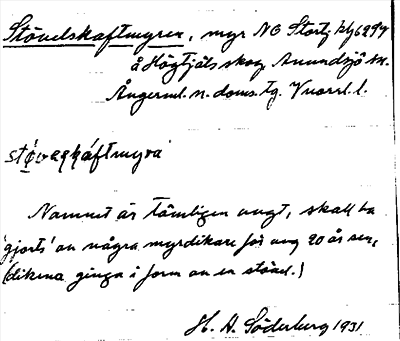 Stövelskaftmyren, myr NO Stortj. hfg 6294
å Högtjäls skog Anundsjö sn.
Ångerml. n. doms. tg. Vnorrl. l.
Namnet är tämligen ungt, skall ha
'gjorts' av några myrdikare för ung 20 år sen,
(dikena gingo i form av en stövel.)
H. A. Söderberg 1931